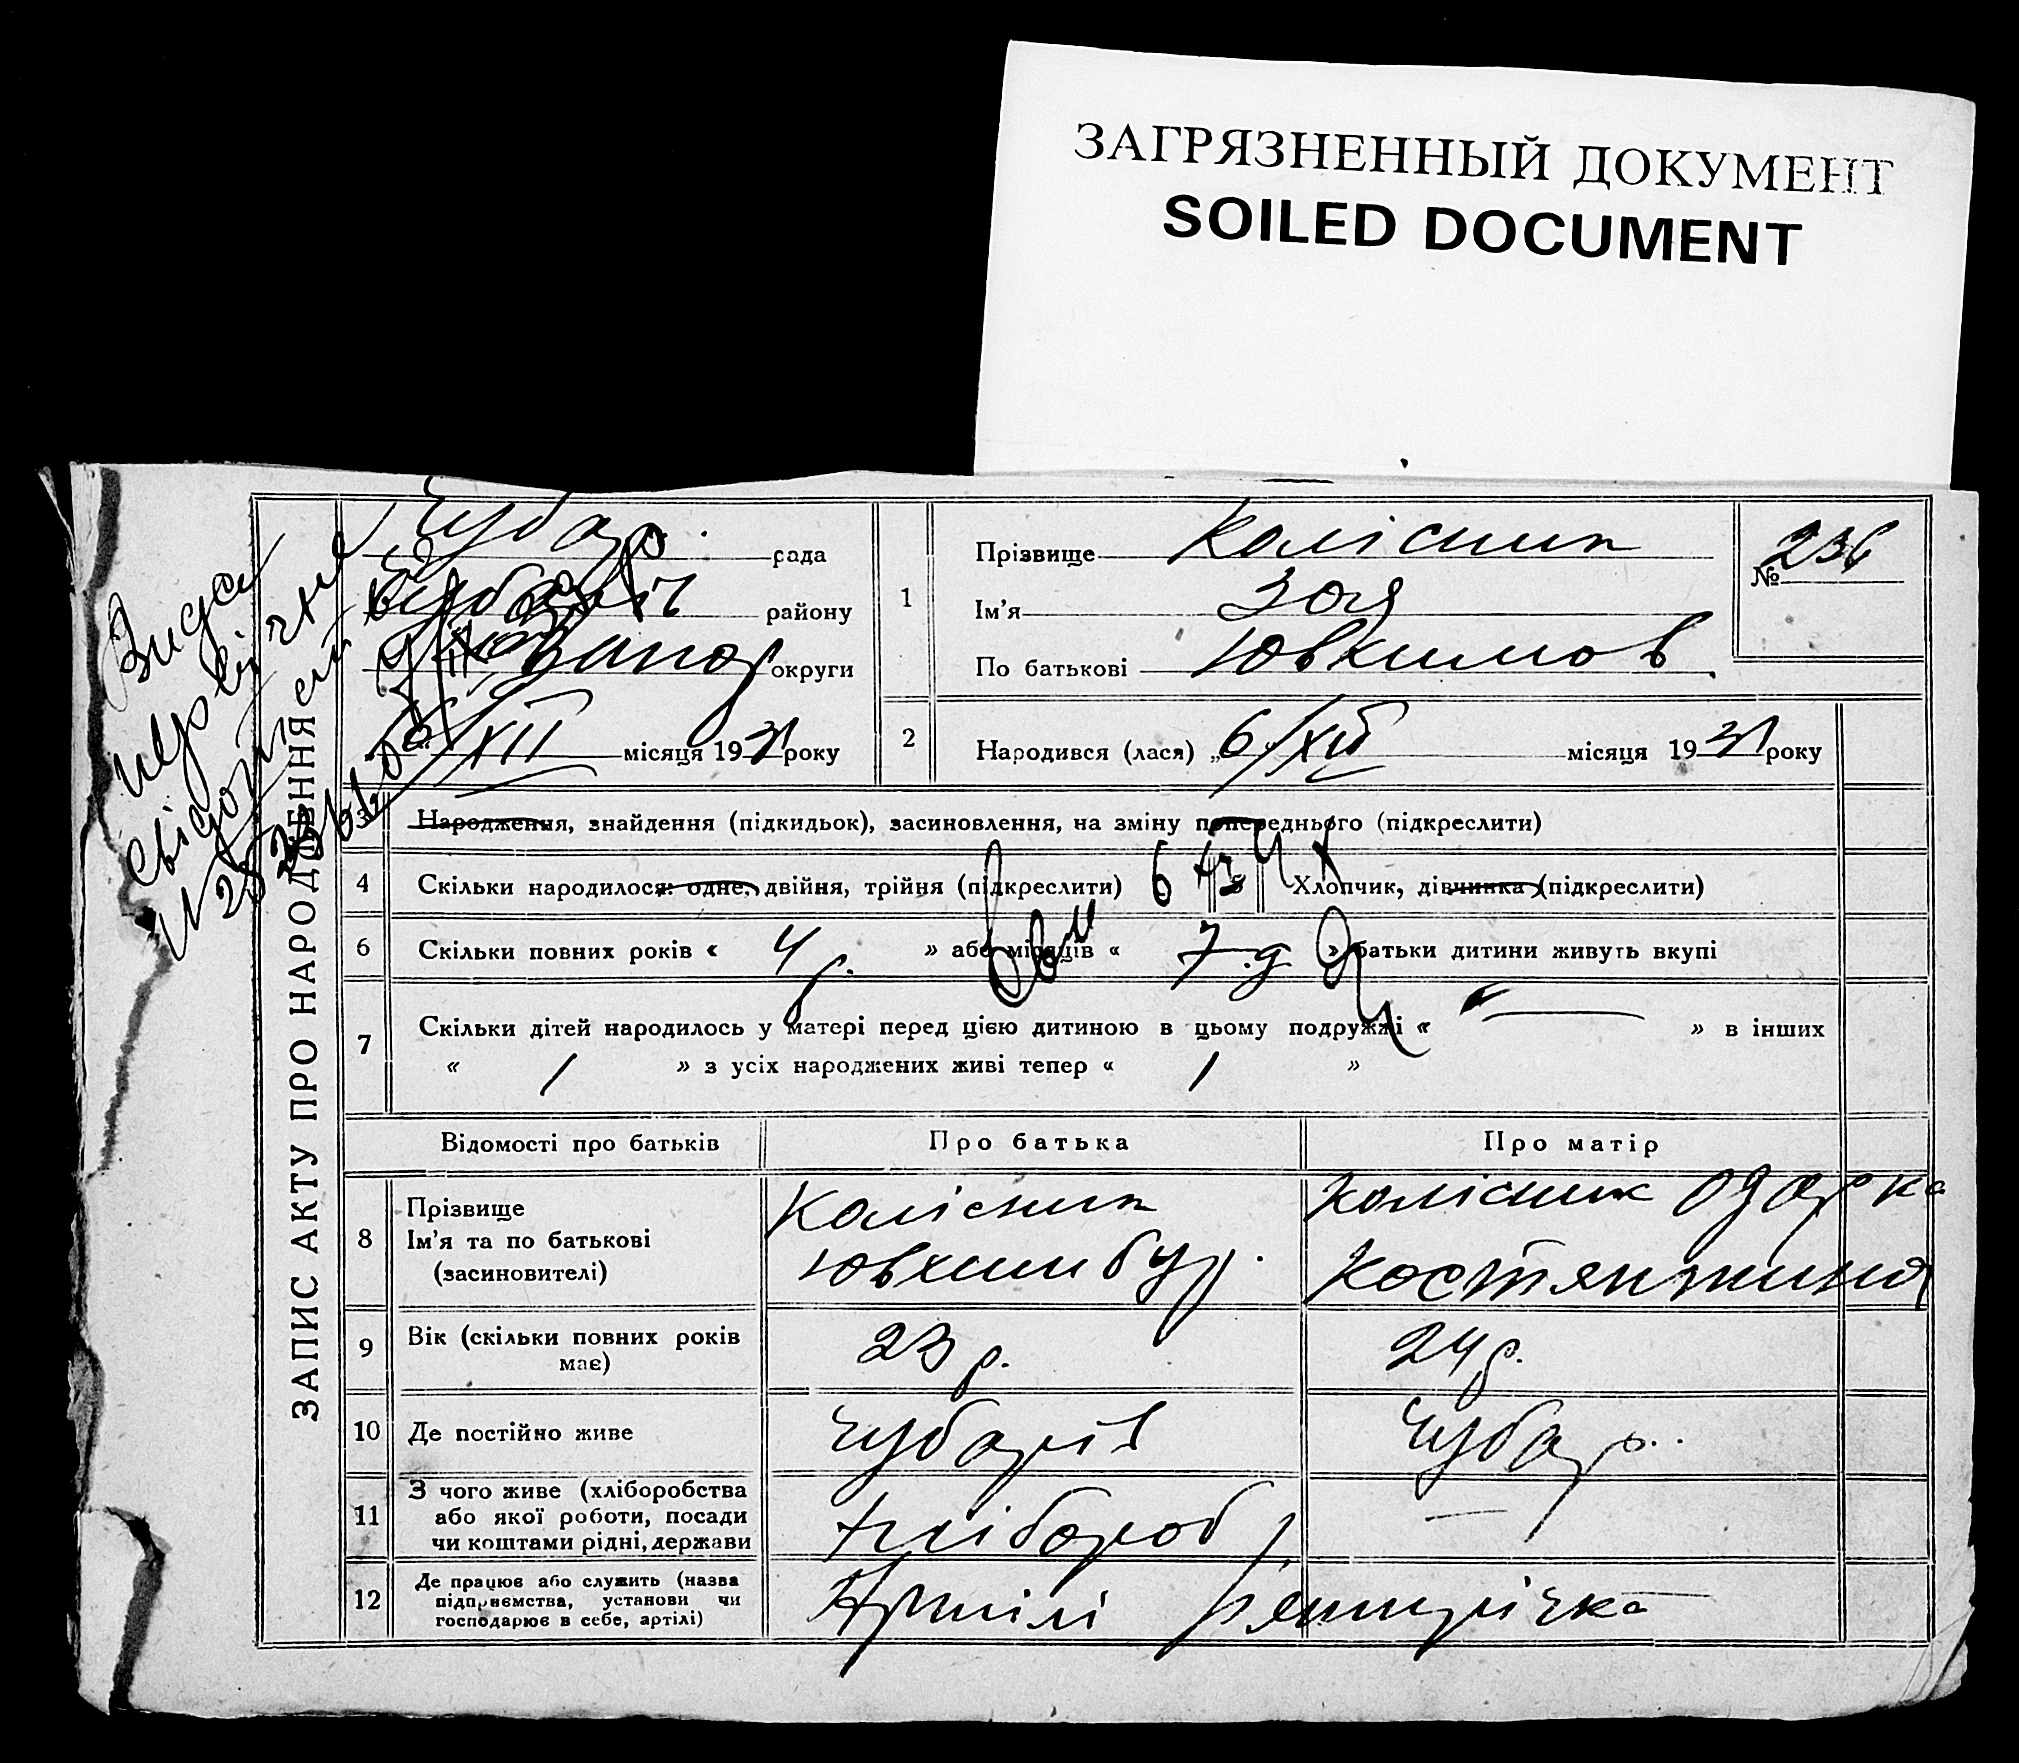 ЗАГРЯЗНЕННЫЙ ДОКУМЕНТ
SOILED DOCUMENT
ЗАПИС АКТУ ПРО НАРОДЖЕННЯ
Чубар. рада
району
Запор округи
XII місяця 1931 року
1
Прізвище Колісник
Ім'я Зоя
По батькові Ювхимов
№ 236
2
Народився (лася) „6 XII місяця 1931 року
3
Народження, знайдення (підкидьок), засиновлення, на зміну попереднього (підкреслити)
4
Скільки народилося: одне, двійня, трійня (підкреслити)
Хлопчик, дівчинка (підкреслити)
6
Скільки повних років « 4 р. » або місяців « 7 » батьки дитини живуть вкупі
7
Скільки дітей народилось у матері перед цією дитиною в цьому подружжі « — » в інших
« 1 » з усіх народжених живі тепер « 1 »
Відомості про батьків
Про батька
Про матір
8
Прізвище
Ім'я та по батькові
(засиновителі)
Колісник
Ювхим
Колісник Одарка
Костянтинов
9
Вік (скільки повних років має)
23 р.
24 р.
10
Де постійно живе
Чубарів
Чубар.
11
З чого живе (хліборобства
або якої роботи, посади
чи коштами рідні, держави
хлібороб
—
12
Де працює або служить (назва
підприємства, установи чи
господарює в себе, артілі)
Артілі
Видан
свідоцт